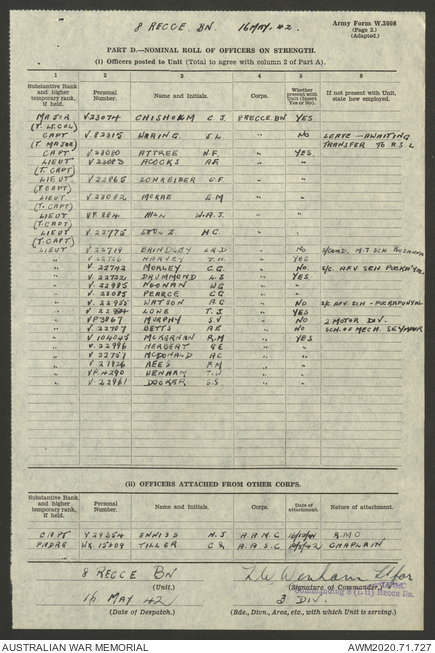 8 RECCE. BN. 16 MAY. 42. Army Form W.3008
(Page 2.)
(Adapted.)
PART D.—NOMINAL ROLL OF OFFICERS ON STRENGTH.
(i) Officers posted to Unit (Total to agree with column 2 of Part A).
1 2 3 4 5 6
Substantive Rank and higher temporary rank, if held. Personal Number. Name and Initials. Corps. Whether present with Unit (Insert Yes or No). If not present with Unit, state how employed.
MAJOR V23074 CHISHOLM C.J. 8 RECCE.BN YES
(T. LT. COL)
CAPT V.82315 WARING J.L " NO LEAVE - AWAITING
(T. MAJOR) TRANSFER TO R.S.L
CAPT. V.23080 ATTREE N.F. " YES
LIEUT V.23083 ACOCKS "
(T. CAPT)
LIEUT. V.22865 SCHREIBER C.F. "
(T. CAPT)
LIEUT V.23082 McRAE E.M "
(T. CAPT)
LIEUT VP.884 W.A.J. "
(T. CAPT)
LIEUT V.22775 H.C. "
(T. CAPT)
LIEUT V.22719 BRINDLEY " NO M.T SCH
" HARVEY " YES
" V.22742 MORLEY C.G. " NO. S/C. AFV SCH PUCKAPUNYAL
" V.22722 DRUMMOND L.S " YES
" V.22985 NOONAN W.G "
" V.23085 PEARCE C.G "
" V.22955 WATSON A.G " NO S/C AFV SCH - PUCKAPUNYAL
" LOWE T.J. " YES
" VP3867 MURPHY S.V " NO 2 MOTOR DIV.
" V.22707 BETTS " NO SCH. OF MECH. SEYMOUR
" V104045 McKERNAN R.M " YES
" V.22996 HERBERT G.E "
" V.22757 McDONALD H.C "
" V.27926 REES F.M "
" VP.4290 WENHAM T.W "
" V.22961 DOCKER S.S. "
(ii) OFFICERS ATTACHED FROM OTHER CORPS.
Substantive Rank and higher temporary rank, if held. Personal Number. Name and Initials. Corps. Date of attachment. Nature of attachment.
CAPT ENNISS H.J A.A.M.C R.M.O
PADRE TILLER C.R A.A.S.C CHAPLAIN
8 RECCE BN
(Unit.) (Signature of Commander.)
Commanding 8 (L.H) RECCE Bn.
16 MAY 42 3 DIV.
(Date of Despatch.) (Bde., Divn., Area, etc., with which Unit is serving.)
AUSTRALIAN WAR MEMORIAL AWM2020.71.727